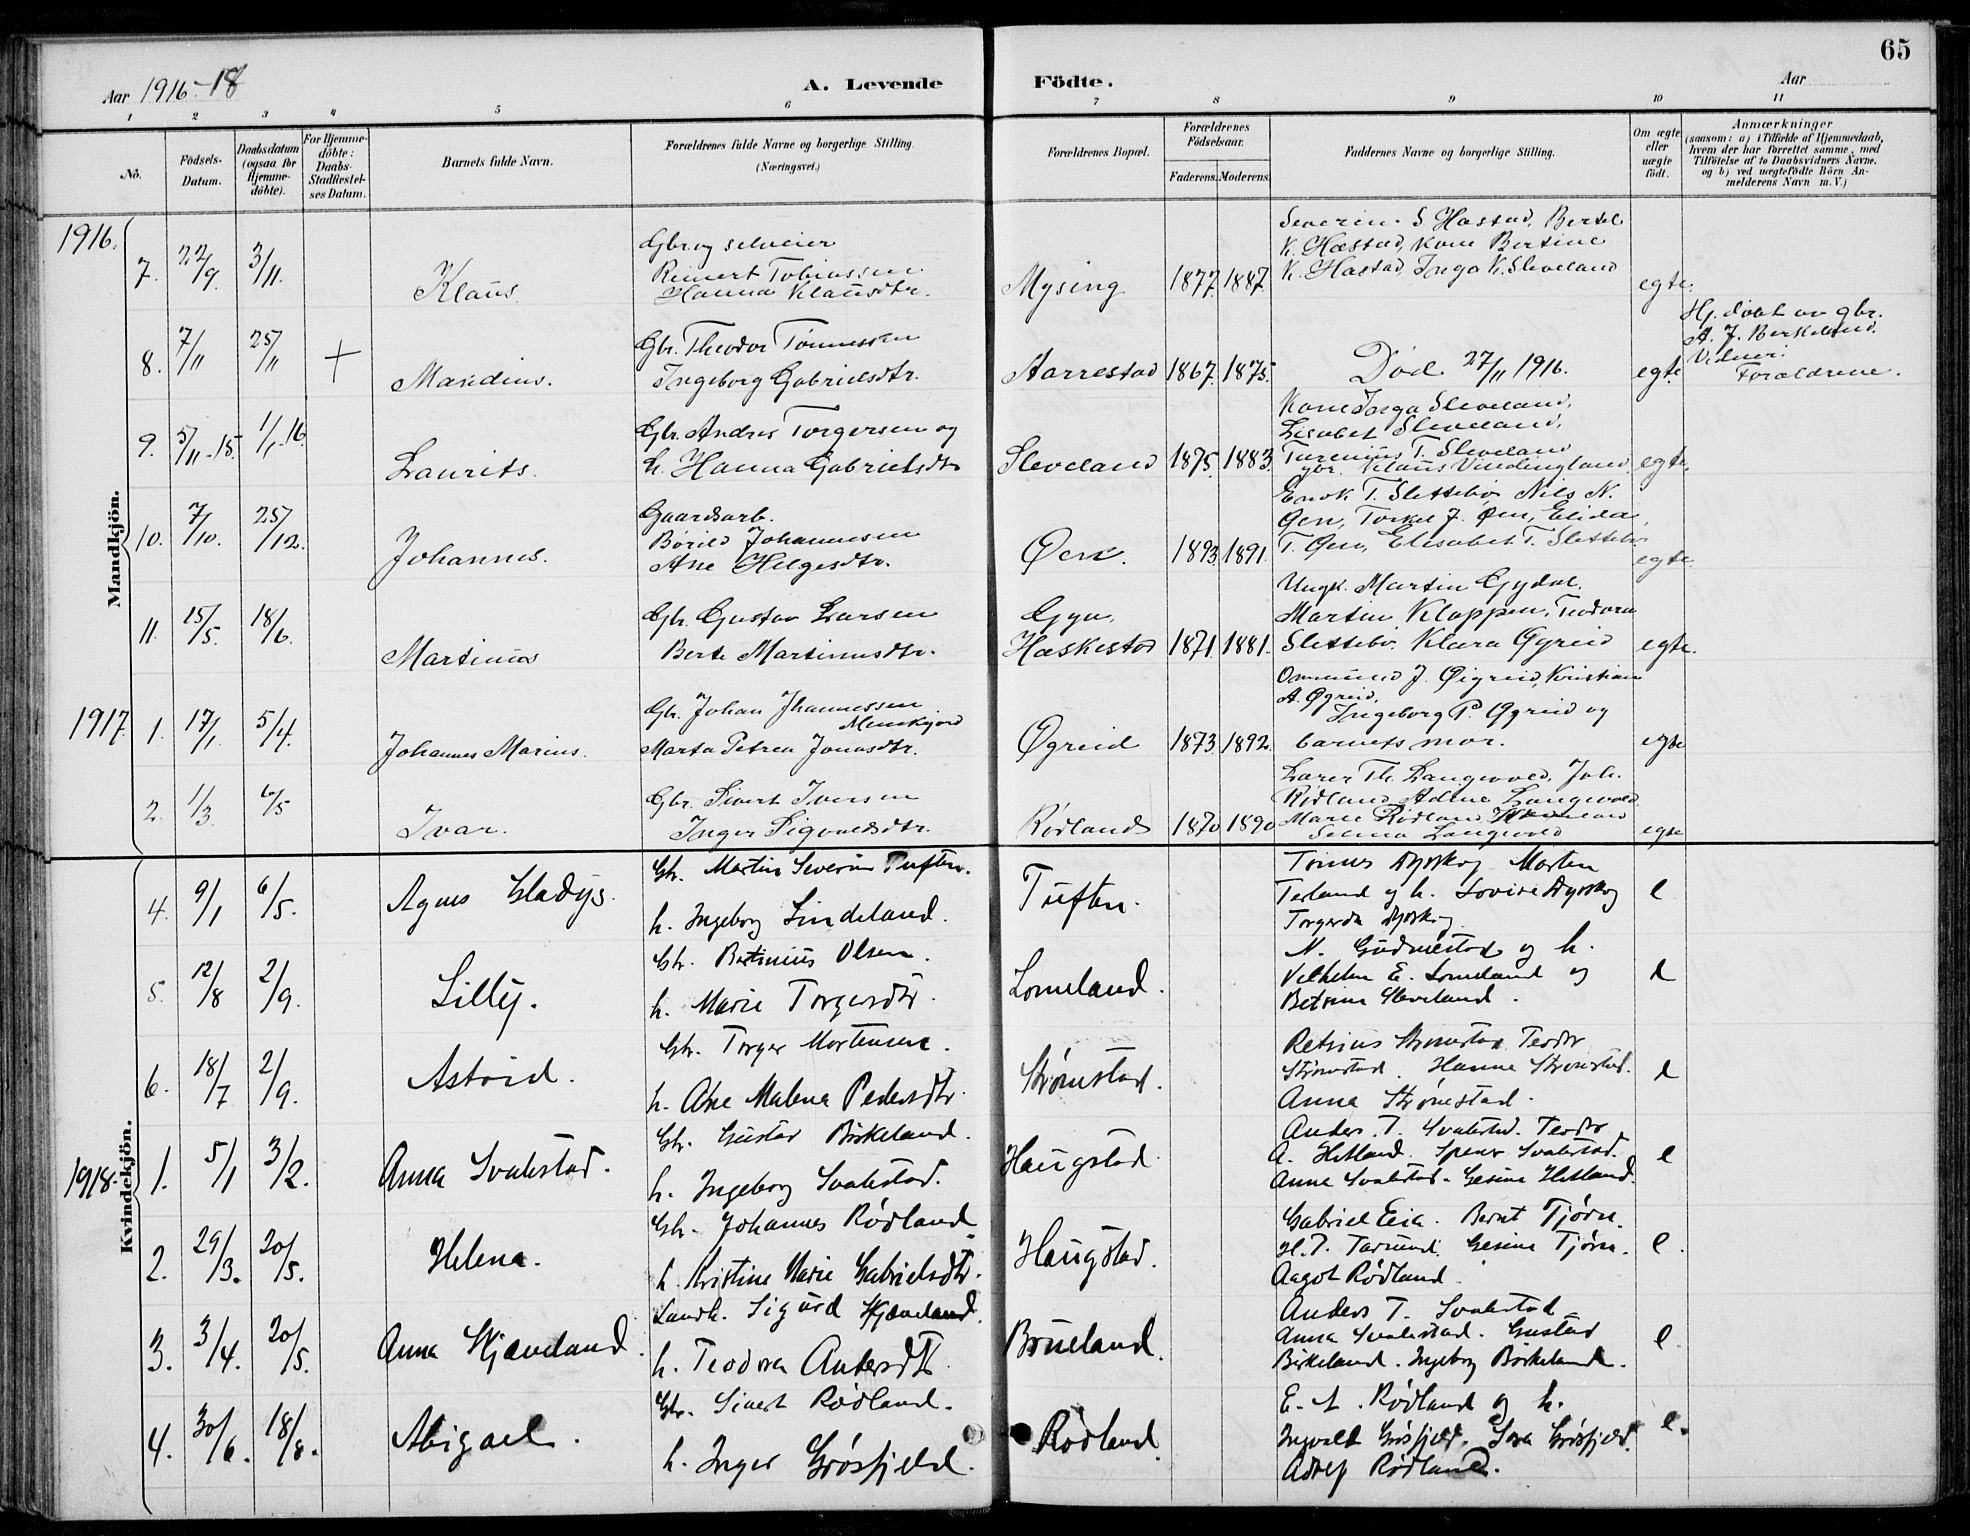 65
Aar 1916-18
A. Levende Födte.
Aar
1 2 3 4 5 6 7 8 9 10 11
No.
Födsels-Datum.
Daabsdatum (ogsaa for Hjemme-döbte).
For Hjemme-döbte: Daabs-Stadfæstel-ses Datum.
Barnets fulde Navn.
Forældrenes fulde Navne og borgerlige Stilling. (Næringsvei.)
Forældrenes Bopæl.
Forældrenes Födselsaar.
Faderens. Moderens.
Faddernes Navne og borgerlige Stilling.
Om ægte eller uægte födt.
Anmærkninger
(saasom: a) i Tilfælde af Hjemmedaab,
hvem der har forrettet samme, med
Tilföielse af to Daabsvidners Navne,
og b) ved uægtefödte Börn An-
melderens Navn m.V.)
Mandkjön.
1916.
7. 22/9. 3/11. Klaus
Gbr. og selveier
Reinert Tobiassen
Hanna Klausdtr.
Mysing 1877. 1887.
Severin S Hæstad, Bertel
K. Hæstad, Kone Bertine
K. Hæstad, Inga K. Sleveland
egte.
8. 7/11 25/11 + Mandius.
Gbr. Theodor Tønnessen
Ingeborg Gabrielsdtr.
Aarrestad 1867. 1875.
Død 27/11 1916.
egte.
Hj. døbt av gbr.
A. J. Berkeland.
Vidner:
Forældrene.
9. 5/11-15. 1/1-16 Laurits.
Gbr. Andres Torgersen og
h. Hanna Gabrielsdtr
Sleveland 1875. 1883.
Kone Inga Sleveland,
Lisabet Sleveland,
T. Sleveland
gbr. Klaus Vindingland
egte.
10. 7/10. 25/12. Johannes.
Gaardsarb.
Børild Johannesen
Ane Helgesdtr.
Øen. 1893. 1891.
Enok T. Slettebø Nils N.
Øen, Torkel J. Øen, Elida
T. Øen, Elisabet T. Slettebø
egte.
11. 15/5. 18/6. Martinus
Gbr. Gustav Larsen
Berte Martinusdtr.
Gya,
Hæskestad 1871. 1881.
Ungk. Martin Gydal.
Martin Kloppen, Teodora
Slettebø. Klara Øgreid
egte.
1917.
1. 17/1. 5/4. Johannes Marius.
Gbr. Johan Jhannessen
Marta Petrea Jonasdtr.
Øgreid 1873. 1892.
Ommund J. Øigreid, Kristian
A. Øgreid,
Ingeborg P. Øgreid og
barnets mor.
egte
2. 1/3. 6/5 Ivar.
Gbr. Sivert Iversen
Inger Sigvaldsdtr.
Rødland 1870 1890
Lærer Th. Langevold, Joh.
Rødland Adine Langevold
Marie Rødland
Selma Langevold
egte
Kvindekjön.
4. 9/1 6/5. Agnes Gladys.
Gbr. Martin Severin Tuften.
h. Ingeborg Lindeland.
Tuften.
Tønnes Dypskog Morten
Terland og h. Lovise Dypskog
Torgerda Dypskog
e
5. 12/8 2/9. Lilly.
Gbr. Bertinius Olsen.
h. Marie Torgersdtr.
Lomeland.
N. Gudmestad og h.
Velhelm E. Lomeland og
Betrine Sleveland.
e
6. 18/7 2/9. Astrid.
Gbr. Torger Mortensen.
h. Ane Malena Pedersdtr.
Strømstad.
Retrius Strømstad Teodor
Strømstad. Hanna Strømstad.
Anna Strømstad.
e
1918.
1. 5/1 3/2. Anna Svalestad.
Gbr. Gustav Birkeland.
h. Ingeborg Svalestad.
Haugstad.
Anders T. Svalestad. Teodor
A. Hetland. Svalestad.
Anna Svalestad. Gesine Hetland.
e
2. 29/3. 20/5. Helena.
Gbr. Johannes Rødland
h. Kristine Marie Gabrielsdtr.
Haugstad.
Gabriel Eia. Bernt Tjørn.
H. T. Gesine Tjørn.
Aagot Rødland.
e.
3. 3/4. 20/5. Anna Skjæveland.
Landh. Sigurd Skjæveland
h. Teodora Andersdtr.
Brueland.
Anders T. Svalestad
Anna Svalestad. Gustav
Birkeland. Ingeborg Birkeland.
e.
4. 30/6. 18/8. Abigael.
Gbr. Sivert Rødland.
h. Inger Grøsfjeld.
Rødland.
E. A. Rødland og h.
Ingvald Grøsfjeld. Sara Grøsfjeld.
Adolf Rødland.
e.